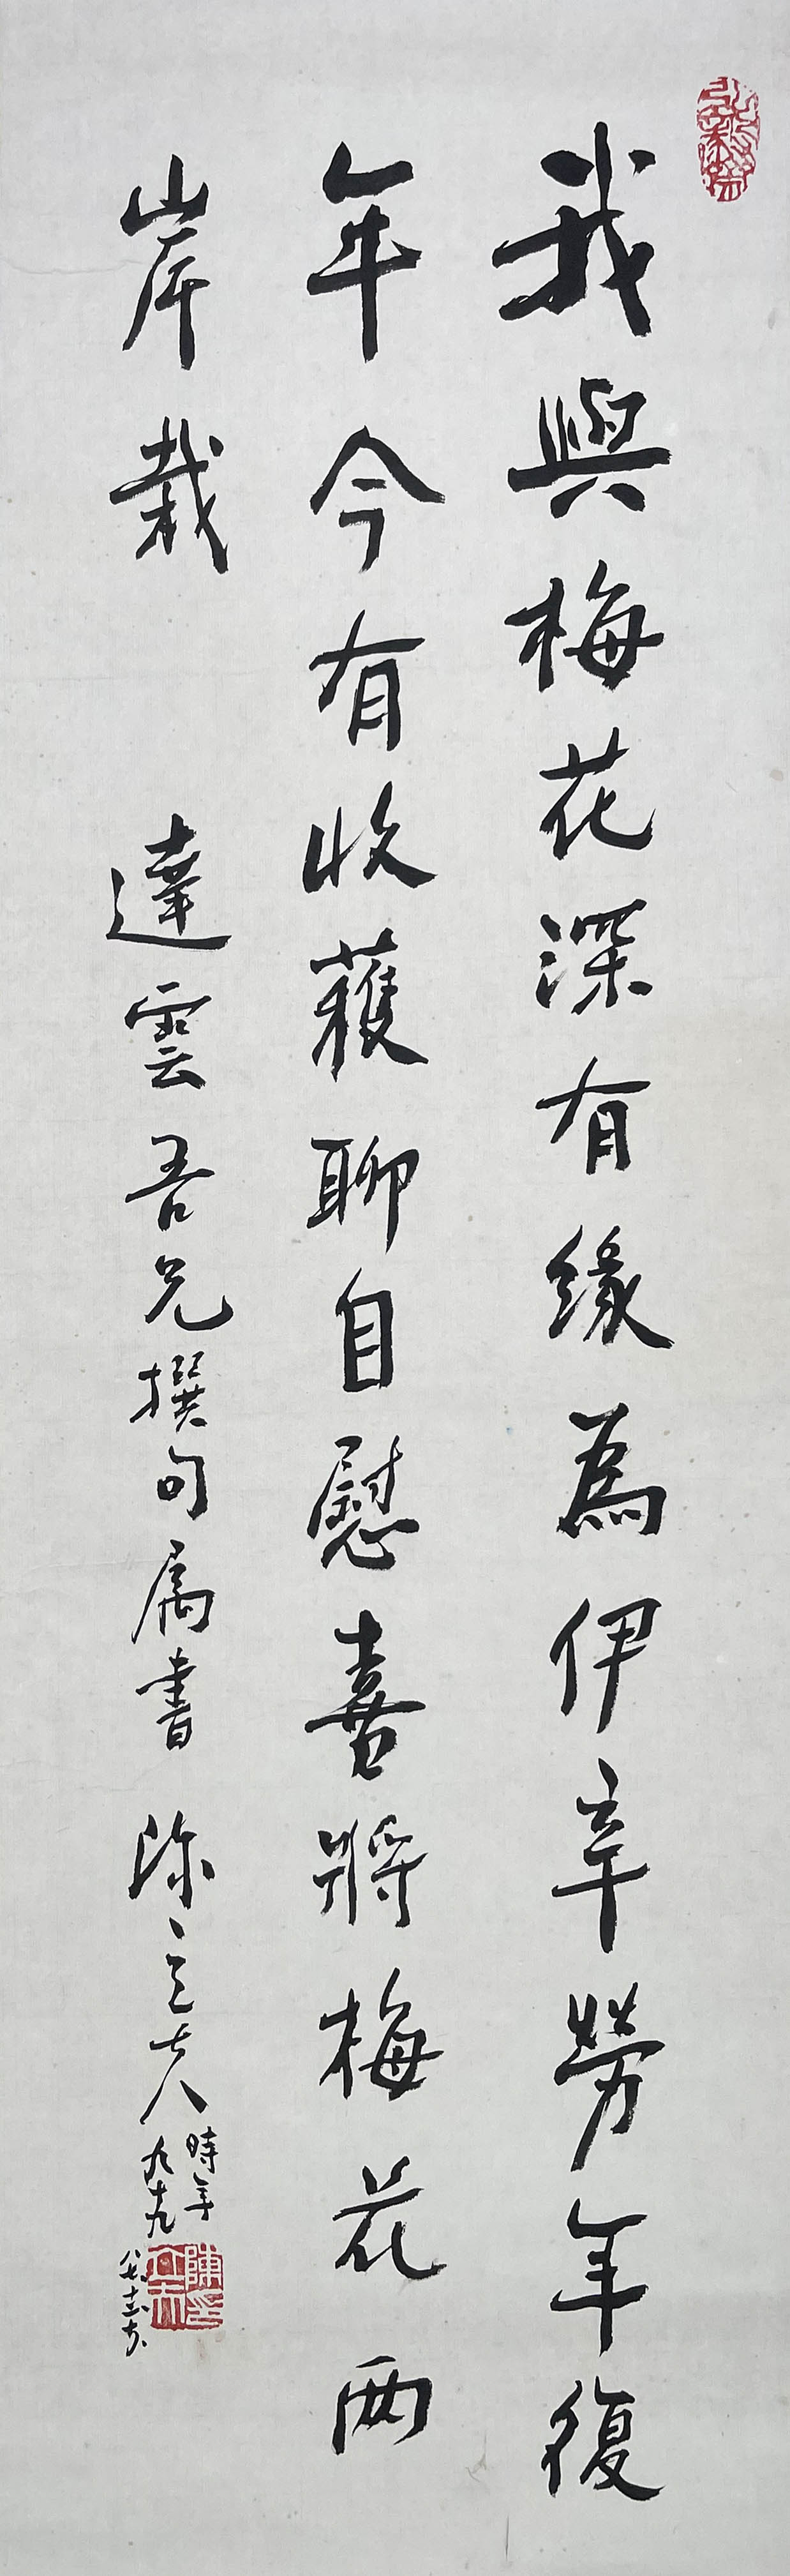 我與梅花深有緣為伊辛勞年復
年今有收穫聊自慰喜將梅花兩
岸栽
達雲吾兄撰句属書 陳立夫
時年
九十九
陳立夫印